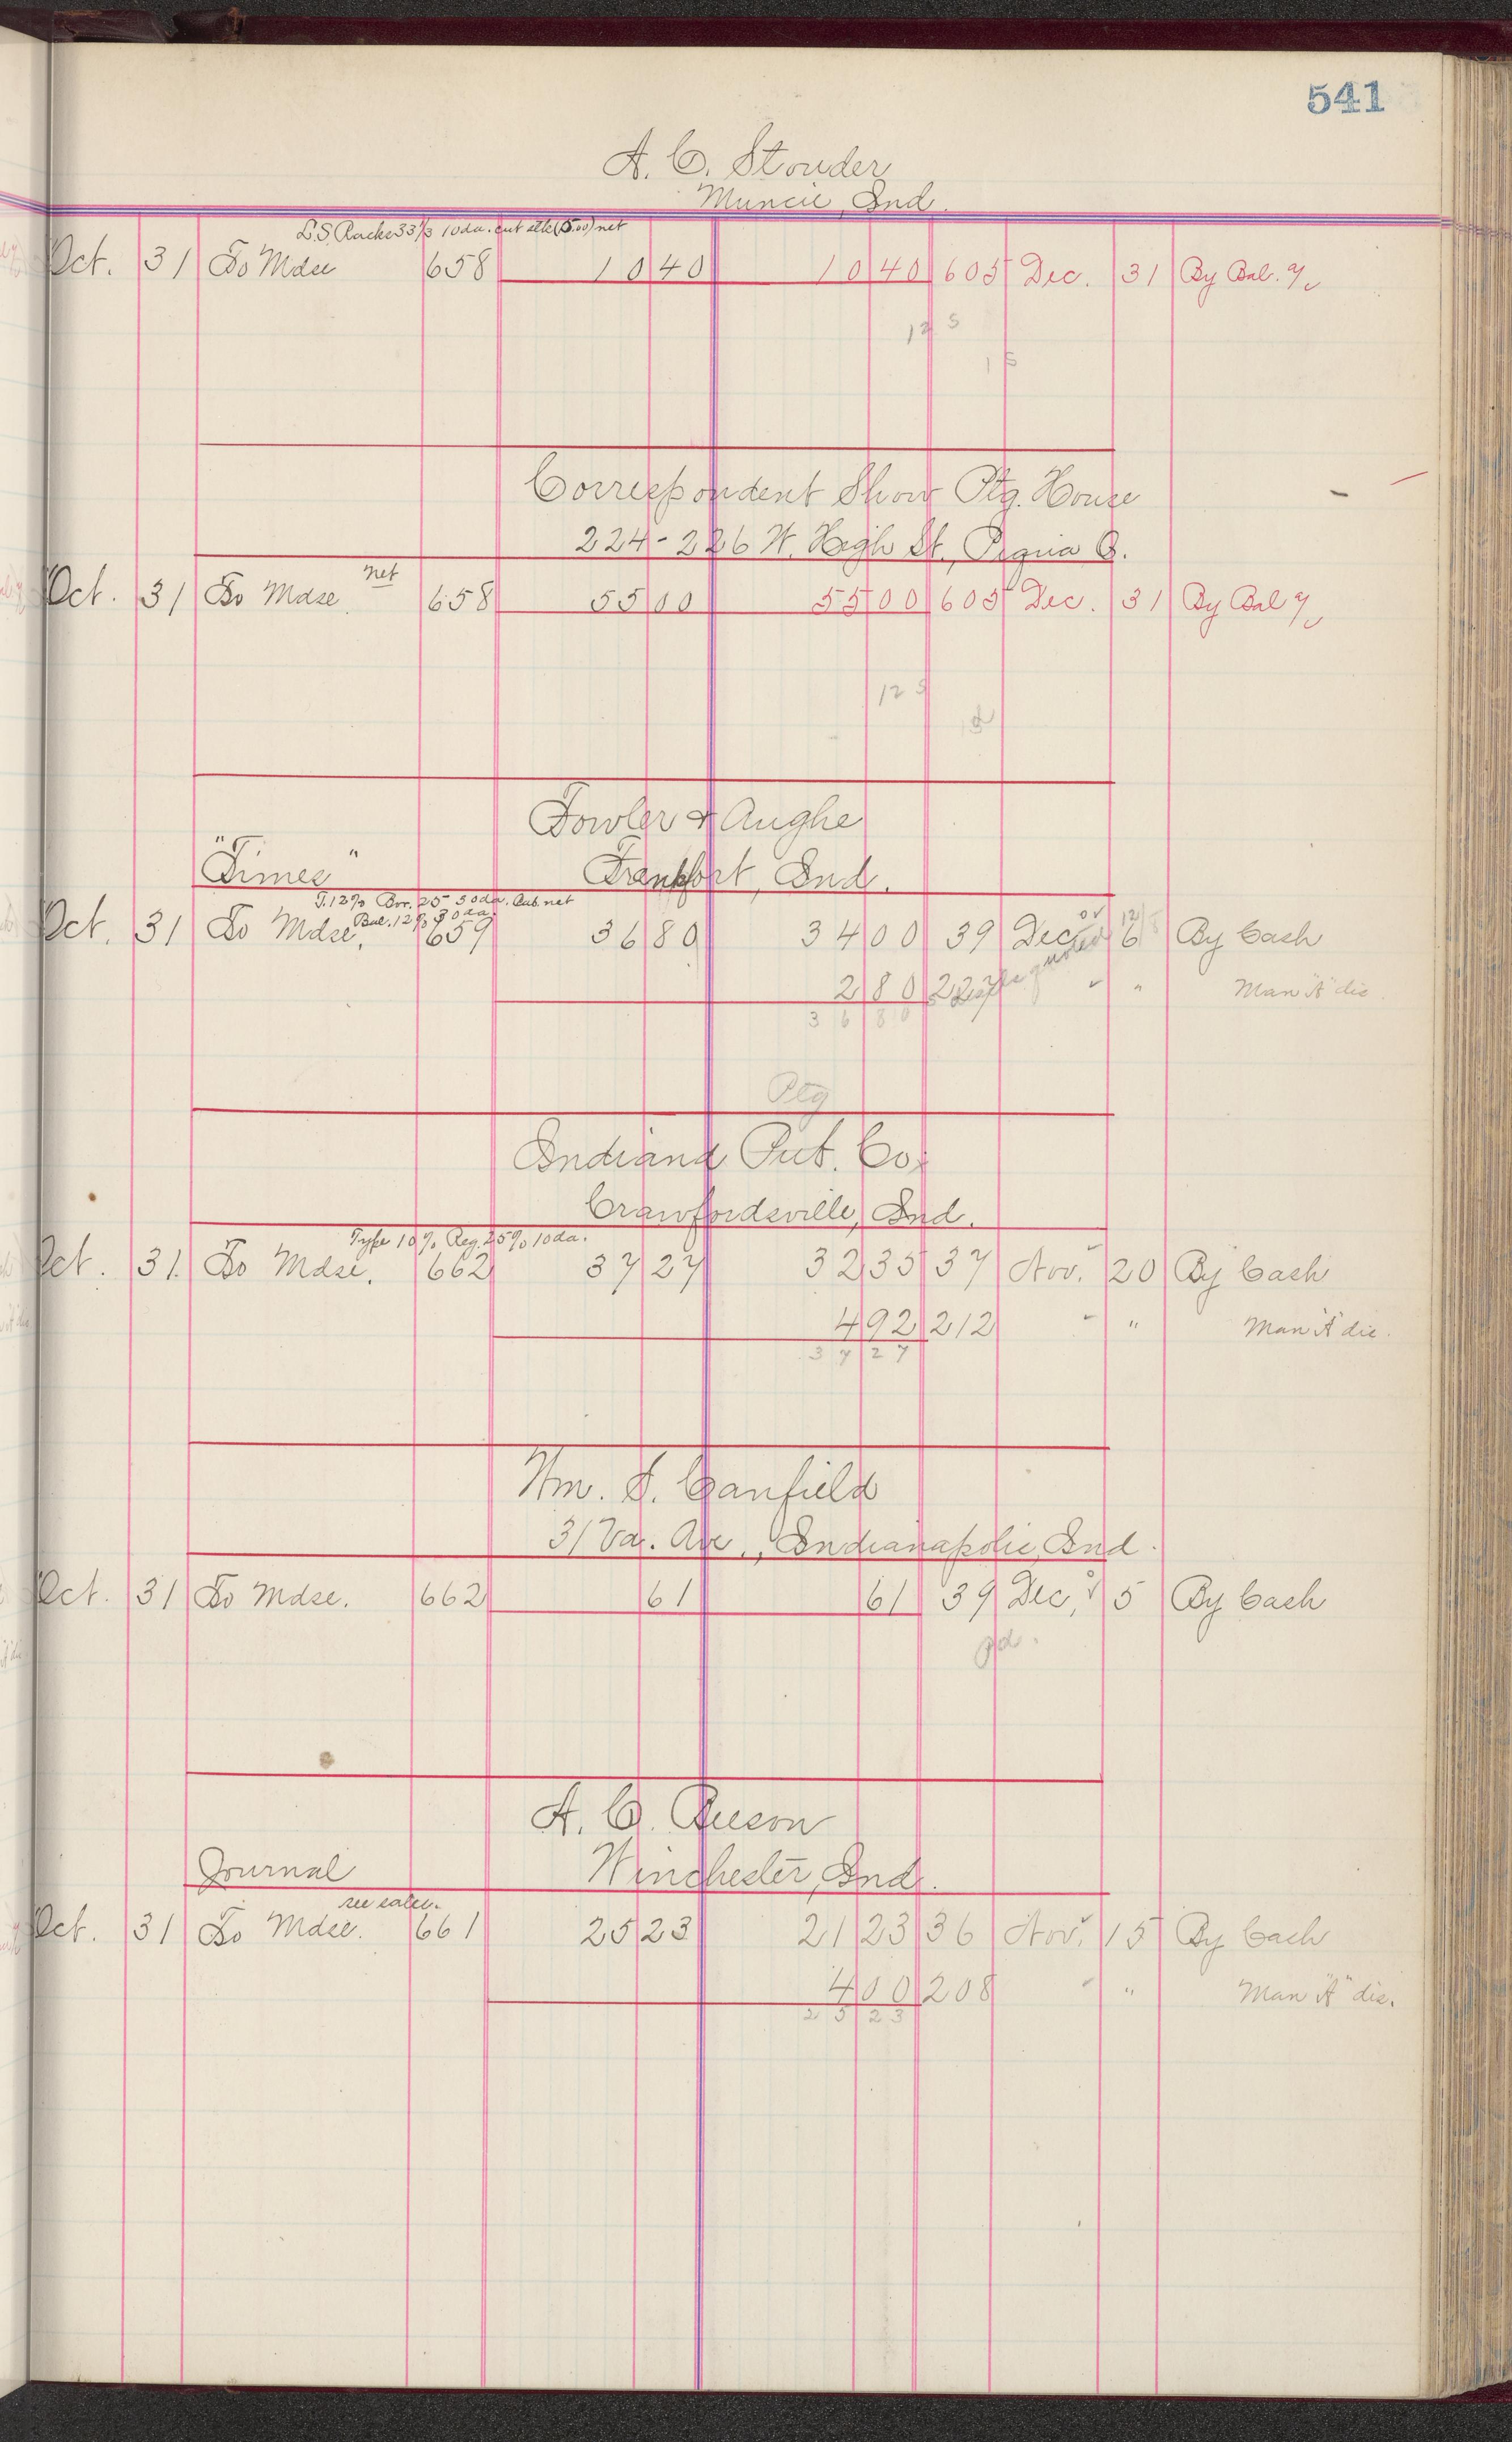 541
A. C. Stouder
Muncie, Ind.
L.S. Racks 33⅓ 10da. cut (5.00) net
Oct. 31 To Mdse 658 10 40 10 40 605 Dec. 31 By Bal. %
12 5
15
Correspondent Show Ptg. House
224-226 W. High St., Piqua O.
net
Oct. 31 To Mdse. 658 55 00 55 00 605 Dec. 31 By Bal %
12 5
Fowler & Aughe
"Times" Frankfort, Ind.
T. 12% Bor. 25 30da. Cab. net
Bal. 12% 30da.
Oct. 31 To Mdse. 659 36 80 34 00 39 Dec. 6 By Cash
2 80 quoted " " Man "A" dis
36 80
Ptg
Indiana Pub. Co.
Crawfordsville, Ind.
Type 10% Reg. 25% 10da.
Oct. 31. To Mdse. 662 37 27 32 35 37 Nov. 20 By Cash
4 92 212 " " Man "A" dis.
37 27
Wm. S. Canfield
31 Va. Ave., Indianapolis, Ind.
Oct. 31 To Mdse. 662 61 61 39 Dec, 5 By Cash
pd.
A. C. Beeson
Journal Winchester, Ind.
see sales.
Oct. 31 To Mdse. 661 25 23 21 23 36 Nov. 15 By Cash
4 00 208 " " Man "A" dis.
25 23